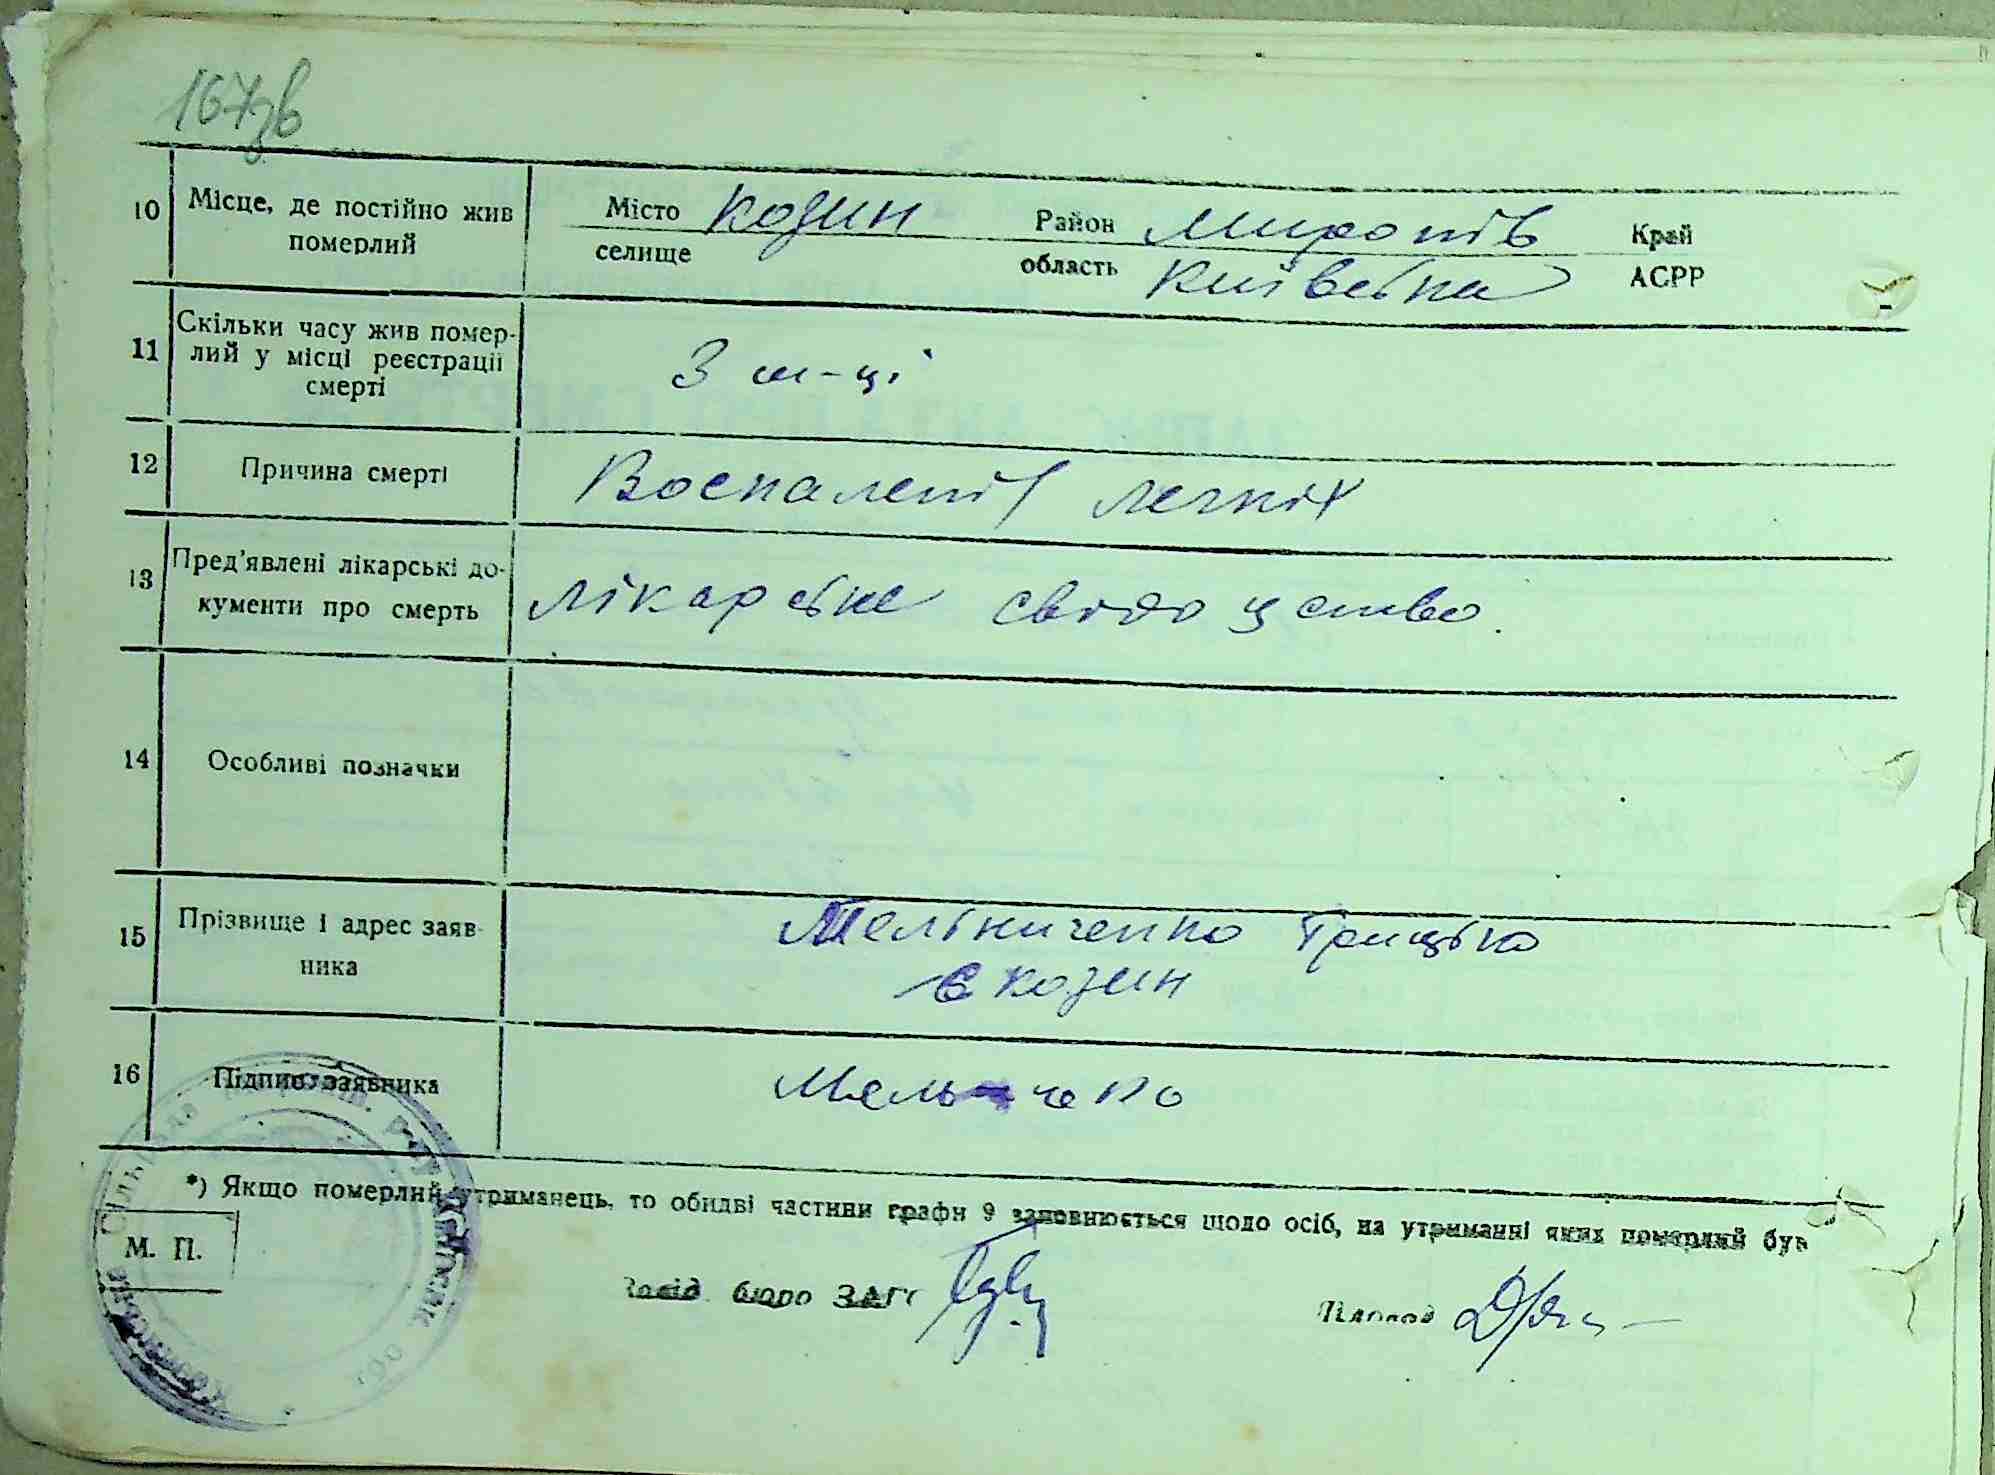 167зв
10 Місце, де постійно жив Місто Козин Район Миронів Край
померлий селище область Київська АСРР
11 Скільки часу жив помер-
лий у місці реєстрації 3 м-ці
смерті
12 Причина смерті Воспаленія легкіх
13 Пред'явлені лікарські до-
кументи про смерть лікарське свідоцство.
14 Особливі позначки
15 Прізвище і адрес заяв- Мельниченко Грицько
ника с Козин
16 Підпис заявника
*) Якщо померлий утриманець, то обидві частини графи 9 заповнюється щодо осіб, на утриманні яких померлий був
М. П.
Завід. бюро ЗАГС Діловод